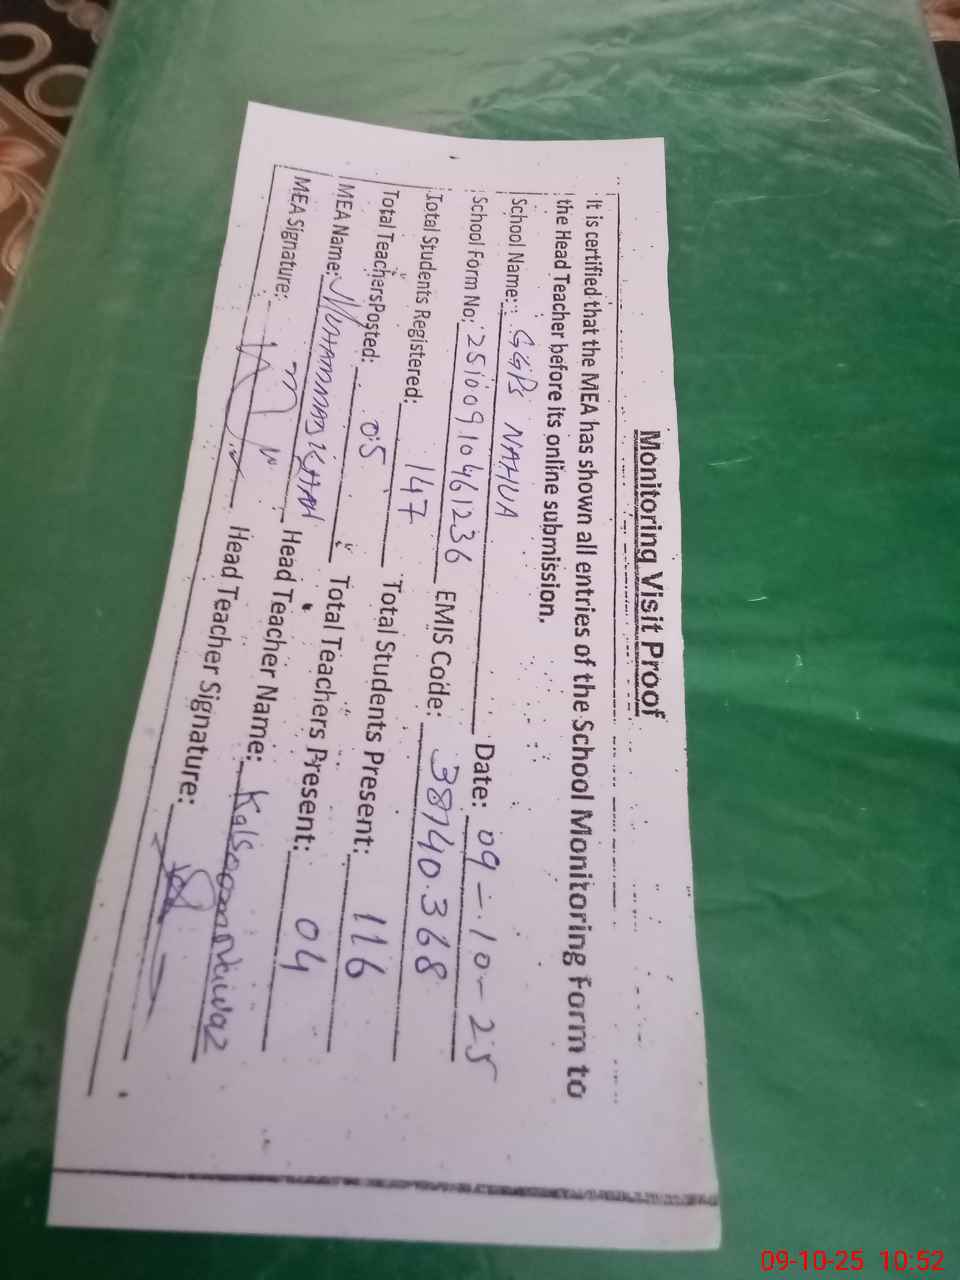 Monitoring Visit Proof
It is certified that the MEA has shown all entries of the School Monitoring Form to
the Head Teacher before its online submission.
School Name: GGPS NAHUA Date: 09-10-25
School Form No: 2510091046 1236 EMIS Code: 38740368
Total Students Registered: 147 Total Students Present: 116
Total Teachers Posted: 05 Total Teachers Present: 04
MEA Name: MUHAMMAD KHAN Head Teacher Name: Kalsoom Nawaz
MEA Signature: Head Teacher Signature:
09-10-25 10:52